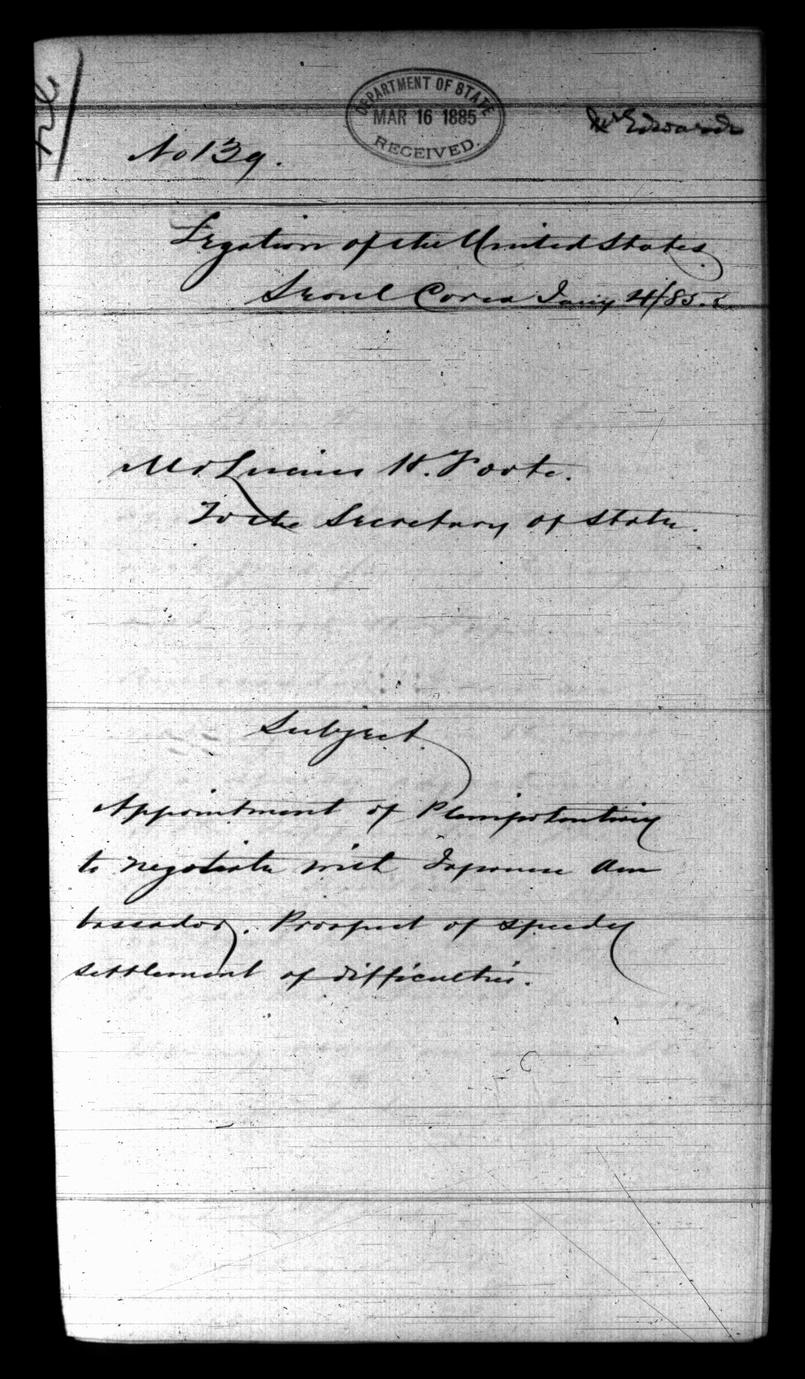 DEPARTMENT OF STATE
MAR 16 1885
RECEIVED.
Mr Edwards
No 139.
Legation of the United States
Seoul Corea Jany 4/85.
Mr Lucius H. Foote.
To the Secretary of State.
Subject
Appointment of Plenipotentiary
to negotiate with Japanese Am
bassador. Prospect of speedy
settlement of difficulties.